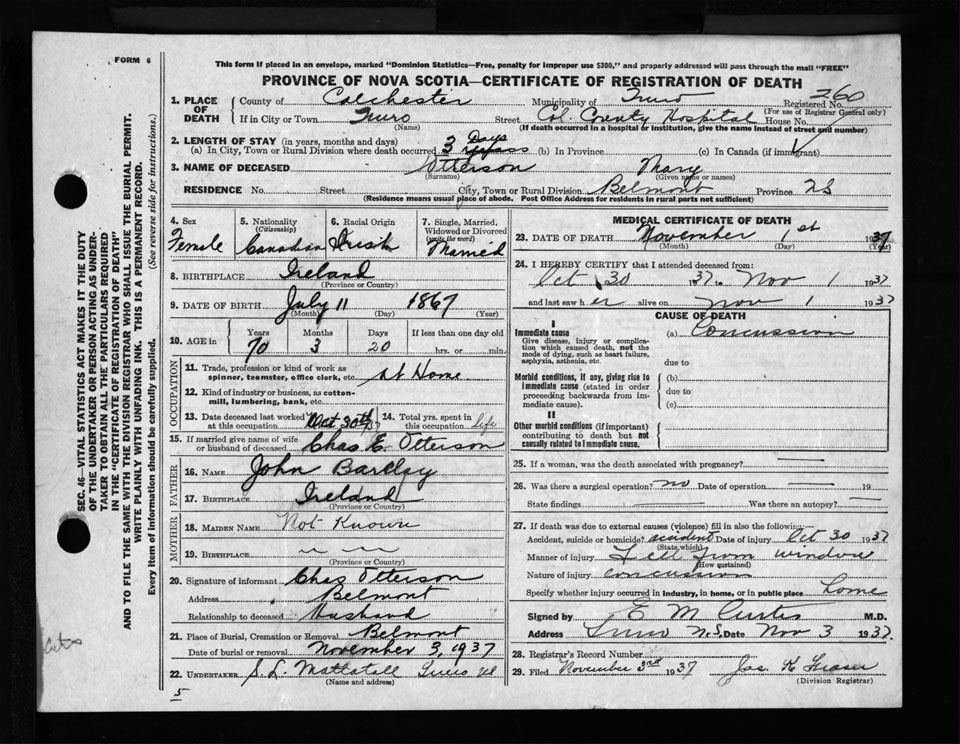 FORM 6
This form if placed in an envelope, marked "Dominion Statistics—Free, penalty for improper use $300," and properly addressed will pass through the mail "FREE"
PROVINCE OF NOVA SCOTIA—CERTIFICATE OF REGISTRATION OF DEATH
1. PLACE OF DEATH
County of Colchester Municipality of Truro Registered No. 260
(For use of Registrar General only)
If in City or Town Truro Street Col. County Hospital House No.
(Name) (If death occurred in a hospital or institution, give the name instead of street and number)
2. LENGTH OF STAY (in years, months and days)
(a) In City, Town or Rural Division where death occurred 3 Days (b) In Province (c) In Canada (if immigrant)
3. NAME OF DECEASED Otterson Mary
(Surname) (Given name or names)
RESIDENCE No. Street City, Town or Rural Division Belmont Province NS
(Residence means usual place of abode. Post Office Address for residents in rural parts not sufficient)
4. Sex Female
5. Nationality (Citizenship) Canadian
6. Racial Origin Irish
7. Single, Married, Widowed or Divorced (write the word) Married
8. BIRTHPLACE Ireland
(Province or Country)
9. DATE OF BIRTH July 11 1867
(Month) (Day) (Year)
10. AGE in Years 70 Months 3 Days 20 If less than one day old hrs. or min.
OCCUPATION
11. Trade, profession or kind of work as spinner, teamster, office clerk, etc. at Home
12. Kind of industry or business, as cotton-mill, lumbering, bank, etc.
13. Date deceased last worked at this occupation Oct 30th 37
14. Total yrs. spent in this occupation life
15. If married give name of wife or husband of deceased Chas E. Otterson
FATHER
16. NAME John Barclay
17. BIRTHPLACE Ireland
(Province or Country)
MOTHER
18. MAIDEN NAME Not Known
19. BIRTHPLACE
(Province or Country)
20. Signature of informant Chas Otterson
Address Belmont
Relationship to deceased Husband
21. Place of Burial, Cremation or Removal Belmont
Date of burial or removal November 3, 1937
22. UNDERTAKER S. L. Mattatall Truro NS
(Name and address)
5
MEDICAL CERTIFICATE OF DEATH
23. DATE OF DEATH November 1st 1937
(Month) (Day) (Year)
24. I HEREBY CERTIFY that I attended deceased from:
Oct 30 1937 to Nov 1 1937
and last saw her alive on Nov 1 1937
CAUSE OF DEATH
I
Immediate cause
Give disease, injury or complication which caused death, not the mode of dying, such as heart failure, asphyxia, asthenia, etc.
(a) Concussion
due to
Morbid conditions, if any, giving rise to immediate cause (stated in order proceeding backwards from immediate cause).
(b)
due to
(c)
II
Other morbid conditions (if important) contributing to death but not causally related to immediate cause.
25. If a woman, was the death associated with pregnancy?
26. Was there a surgical operation? no Date of operation 19
State findings Was there an autopsy?
27. If death was due to external causes (violence) fill in also the following:
Accident, suicide or homicide? accident Date of injury Oct 30 1937
(State which)
Manner of injury Fell from window
(How sustained)
Nature of injury concussion
Specify whether injury occurred in industry, in home, or in public place Home
Signed by E M Curtis M.D.
Address Truro N.S. Date Nov 3 1937.
28. Registrar's Record Number
29. Filed November 3rd 1937 Jas. K Fraser
(Division Registrar)
SEC. 46—VITAL STATISTICS ACT MAKES IT THE DUTY
OF THE UNDERTAKER OR PERSON ACTING AS UNDER-
TAKER TO OBTAIN ALL THE PARTICULARS REQUIRED
IN THE "CERTIFICATE OF REGISTRATION OF DEATH"
AND TO FILE THE SAME WITH THE DIVISION REGISTRAR WHO SHALL ISSUE THE BURIAL PERMIT.
WRITE PLAINLY WITH UNFADING INK. THIS IS A PERMANENT RECORD.
Every item of information should be carefully supplied. (See reverse side for instructions.)